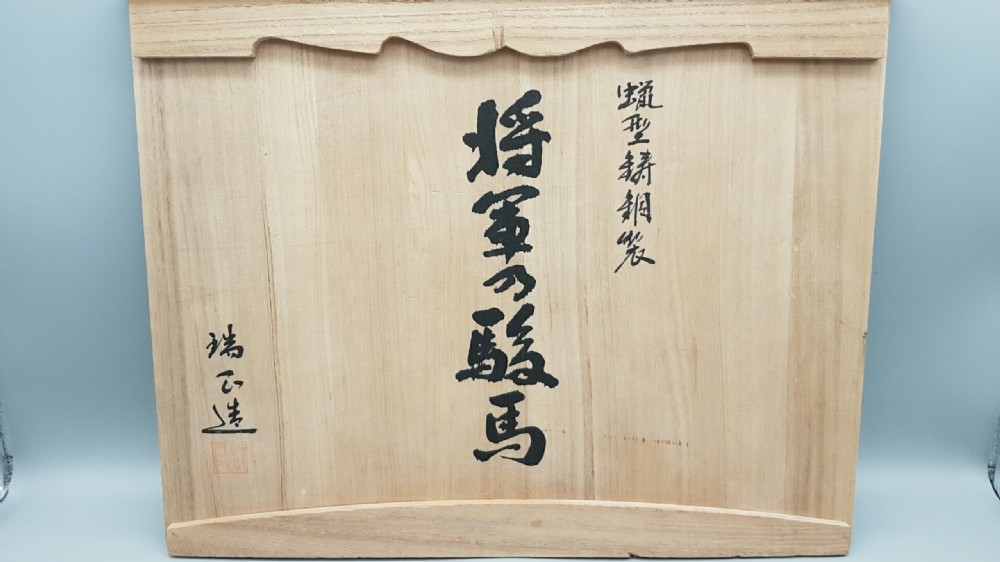 蠟型鋳銅製
将軍の駿馬
瑞正造